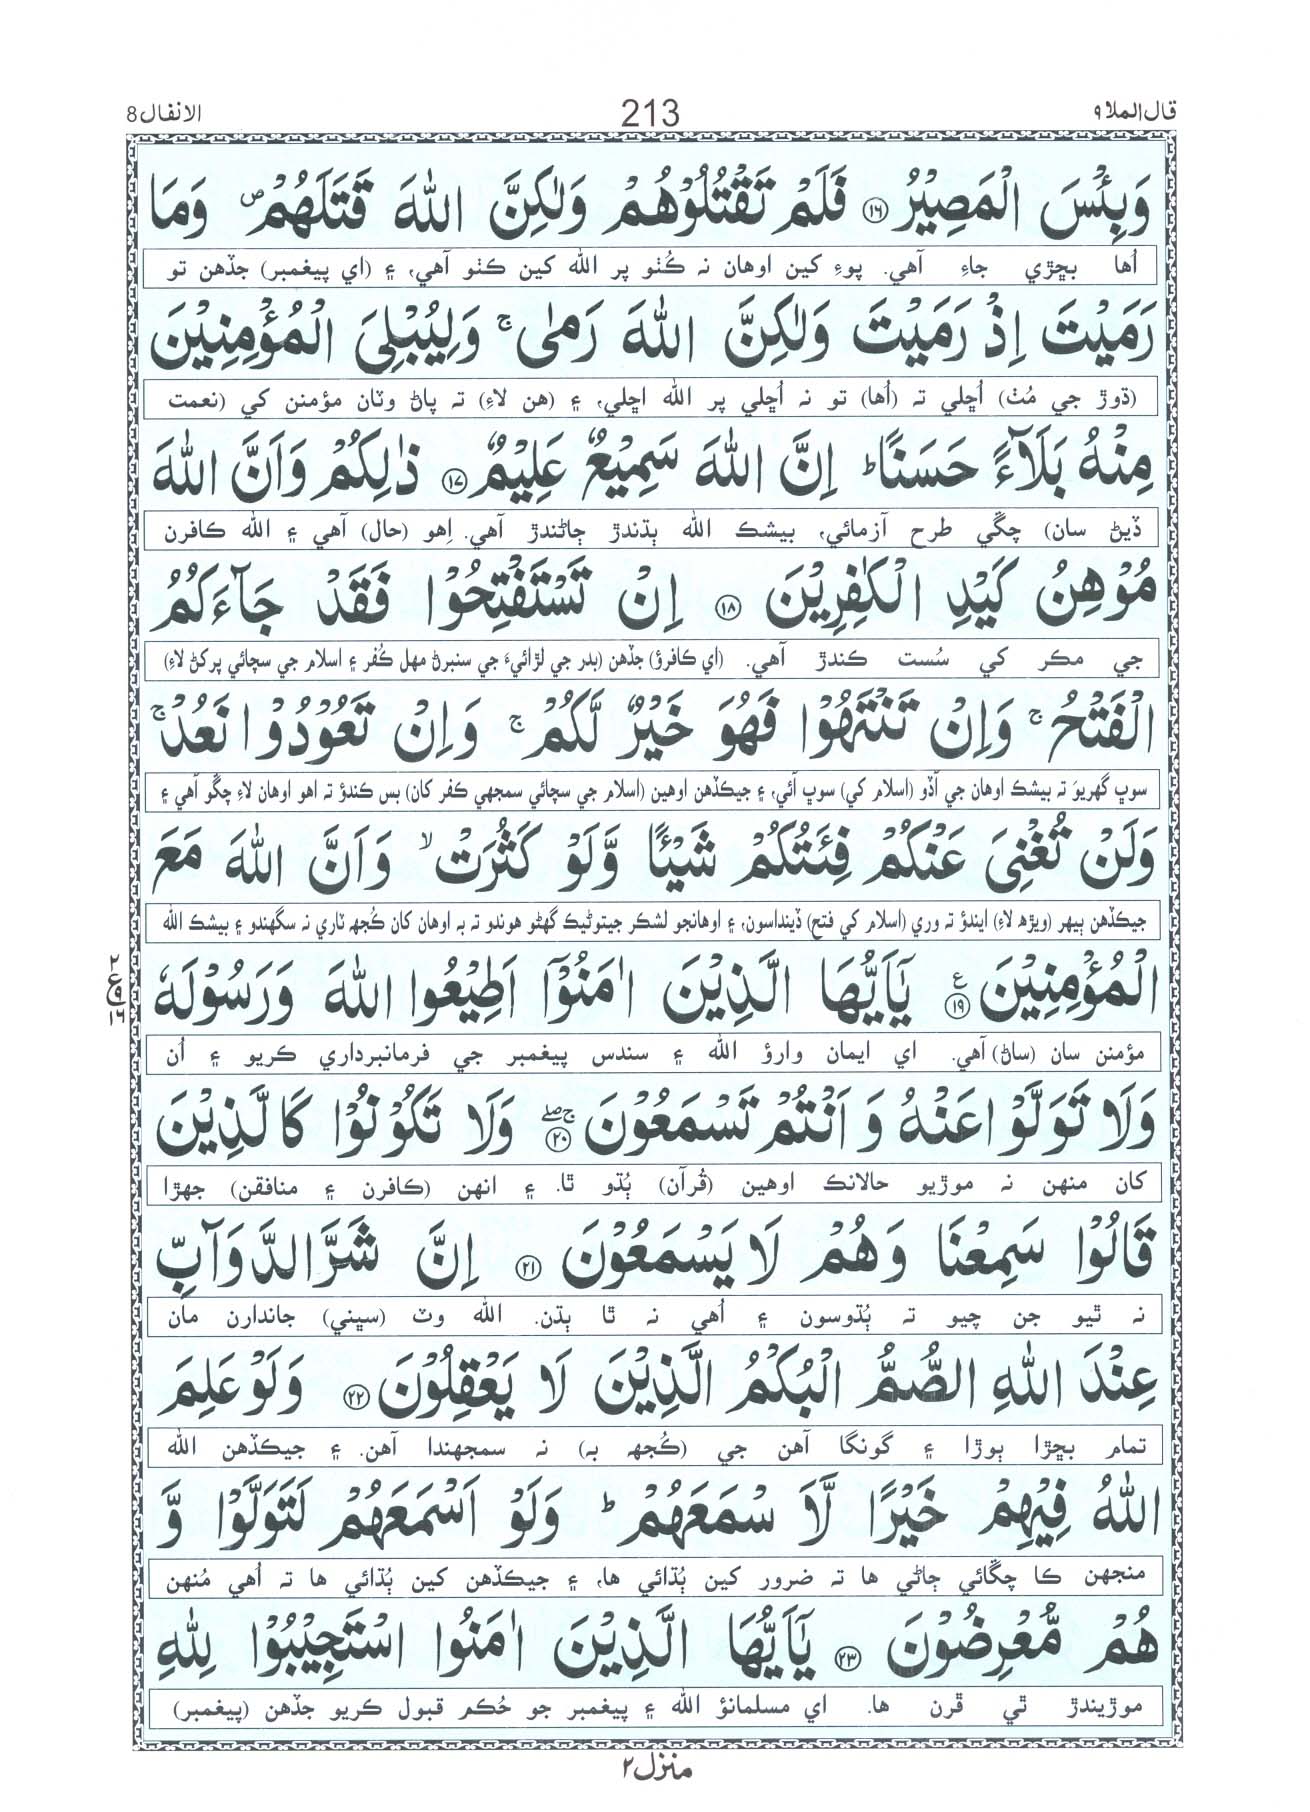 قال الملا ٩
213
الانفال 8
وَبِئْسَ الْمَصِيْرُ ﴿۱۶﴾ فَلَمْ تَقْتُلُوْهُمْ وَلٰكِنَّ اللّٰهَ قَتَلَهُمْ ۪ وَمَا
اُها بڇڙي جاءِ آهي. پوءِ کين اوهان نہ ڪُٺو پر الله کين ڪٺو آهي، ۽ (اي پيغمبر) جڏهن تو
رَمَيْتَ اِذْ رَمَيْتَ وَلٰكِنَّ اللّٰهَ رَمٰى ۚ وَلِيُبْلِىَ الْمُؤْمِنِيْنَ
(ڌوڙ جي مُٺ) اُڇلي تہ (اُها) تو نہ اُڇلي پر الله اڇلي، ۽ (هن لاءِ) تہ پاڻ وٽان مؤمنن کي (نعمت
مِنْهُ بَلَآءً حَسَنًا ؕ اِنَّ اللّٰهَ سَمِيْعٌ عَلِيْمٌ ﴿۱۷﴾ ذٰلِكُمْ وَاَنَّ اللّٰهَ
ڏيڻ سان) چڱي طرح آزمائي، بيشڪ الله ٻڌندڙ ڄاڻندڙ آهي. اِهو (حال) آهي ۽ الله ڪافرن
مُوْهِنُ كَيْدِ الْكٰفِرِيْنَ ﴿۱۸﴾ اِنْ تَسْتَفْتِحُوْا فَقَدْ جَآءَكُمُ
جي مڪر کي سُست ڪندڙ آهي. (اي ڪافرؤ) جڏهن (بدر جي لڙائيءَ جي سنبرڻ مهل ڪُفر ۽ اسلام جي سچائي پرکڻ لاءِ)
الْفَتْحُ ۚ وَاِنْ تَنْتَهُوْا فَهُوَ خَيْرٌ لَّكُمْ ۚ وَاِنْ تَعُوْدُوْا نَعُدْ ۚ
سوڀ گهريوَ تہ بيشڪ اوهان جي آڏو (اسلام کي) سوڀ آئي، ۽ جيڪڏهن اوهين (اسلام جي سچائي سمجهي ڪفر کان) بس ڪندؤ تہ اهو اوهان لاءِ چڱو آهي ۽
وَلَنْ تُغْنِىَ عَنْكُمْ فِئَتُكُمْ شَيْئًا وَّلَوْ كَثُرَتْ ۙ وَاَنَّ اللّٰهَ مَعَ
جيڪڏهن ٻيهر (ويڙهہ لاءِ) ايندؤ تہ وري (اسلام کي فتح) ڏينداسون، ۽ اوهانجو لشڪر جيتوڻيڪ گهڻو هوندو تہ بہ اوهان کان ڪُجهہ ٽاري نہ سگهندو ۽ بيشڪ الله
الْمُؤْمِنِيْنَ ﴿۱۹﴾ ع يٰۤاَيُّهَا الَّذِيْنَ اٰمَنُوْۤا اَطِيْعُوا اللّٰهَ وَرَسُوْلَهٗ
مؤمنن سان (ساڻ) آهي. اي ايمان وارؤ الله ۽ سندس پيغمبر جي فرمانبرداري ڪريو ۽ اُن
وَلَا تَوَلَّوْا عَنْهُ وَاَنْتُمْ تَسْمَعُوْنَ ﴿۲۰﴾ ۚۖ وَلَا تَكُوْنُوْا كَالَّذِيْنَ
کان منهن نہ موڙيو حالانڪ اوهين (قُرآن) ٻُڌو ٿا. ۽ انهن (ڪافرن ۽ منافقن) جهڙا
قَالُوْا سَمِعْنَا وَهُمْ لَا يَسْمَعُوْنَ ﴿۲۱﴾ اِنَّ شَرَّ الدَّوَآبِّ
نہ ٿيو جن چيو تہ ٻُڌوسون ۽ اُهي نہ ٿا ٻڌن. الله وٽ (سڀني) جاندارن مان
عِنْدَ اللّٰهِ الصُّمُّ الْبُكْمُ الَّذِيْنَ لَا يَعْقِلُوْنَ ﴿۲۲﴾ وَلَوْ عَلِمَ
تمام بڇڙا ٻوڙا ۽ گونگا آهن جي (ڪُجهہ بہ) نہ سمجهندا آهن. ۽ جيڪڏهن الله
اللّٰهُ فِيْهِمْ خَيْرًا لَّاَسْمَعَهُمْ ؕ وَلَوْ اَسْمَعَهُمْ لَتَوَلَّوْا وَّ
منجهن ڪا چڱائي ڄاڻي ها تہ ضرور کين ٻُڌائي ها، ۽ جيڪڏهن کين ٻُڌائي ها تہ اُهي مُنهن
هُمْ مُّعْرِضُوْنَ ﴿۲۳﴾ يٰۤاَيُّهَا الَّذِيْنَ اٰمَنُوا اسْتَجِيْبُوْا لِلّٰهِ
موڙيندڙ ٿي ڦرن ها. اي مسلمانؤ الله ۽ پيغمبر جو حُڪم قبول ڪريو جڏهن (پيغمبر)
منزل ٢